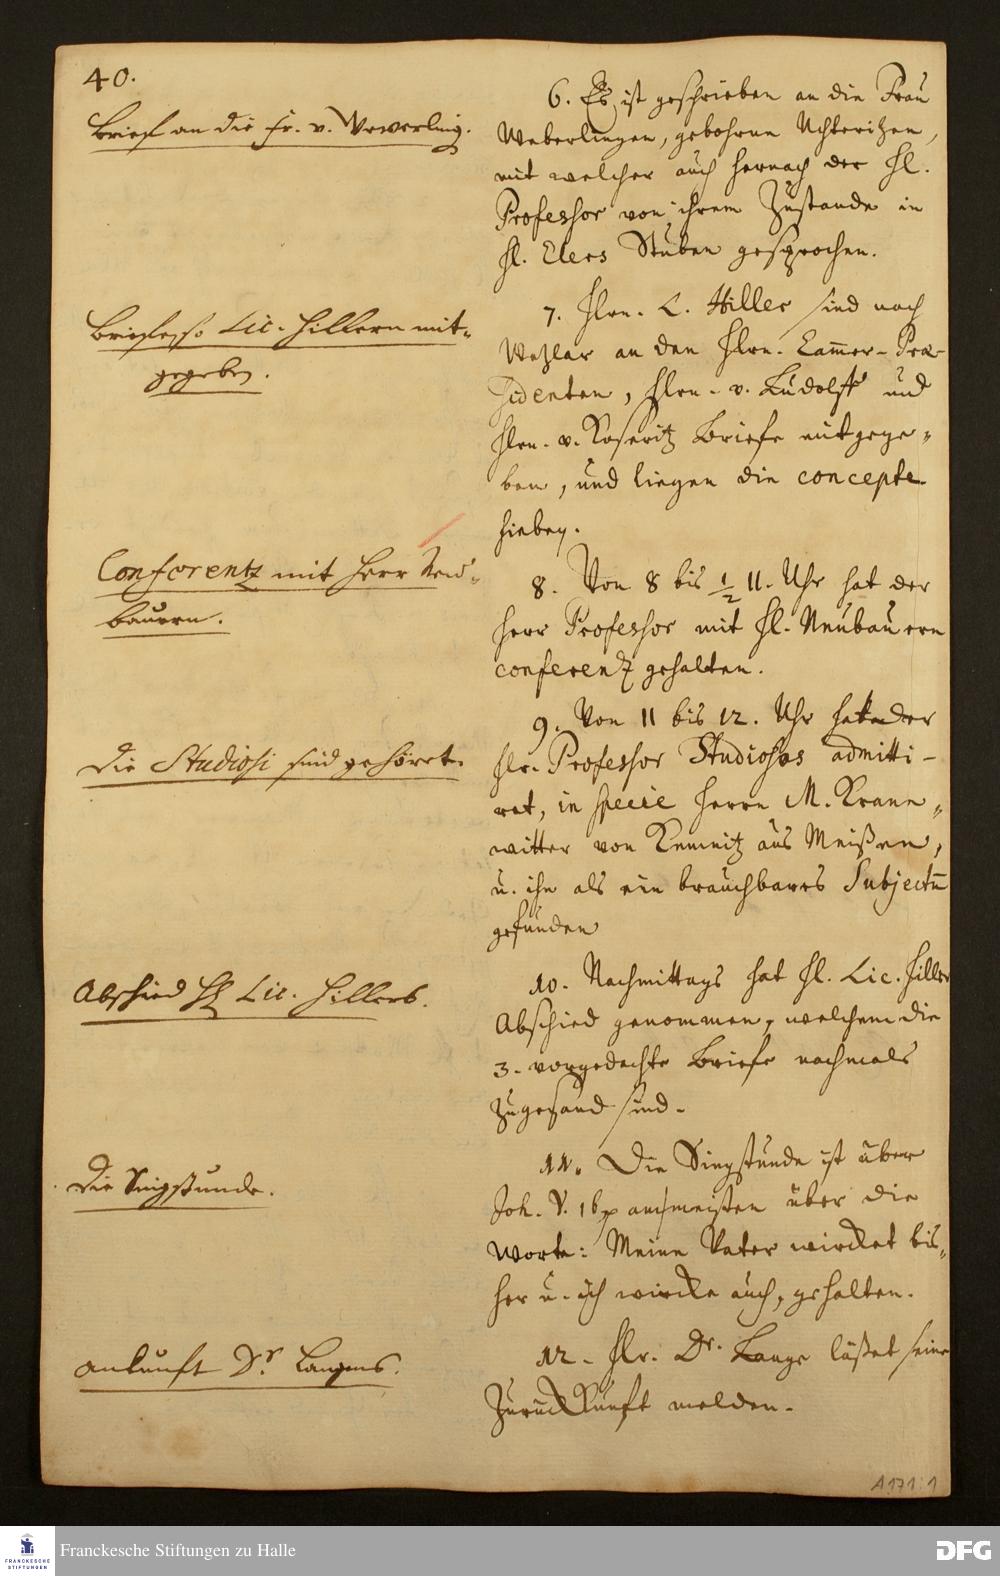 40.
Brief an die Fr. v. Weverling.
6. Es ist geschrieben an die Frau
Weberlingen, gebohrne Uchteritzen,
mit welcher auch hernach der H.
Professor von ihrem Zustande in
H. Elers Stuben gesprochen.
Briefe so Lic. Hillern mit-
gegeben.
7. Hrn. L. Hiller sind nach
Wezlar an den Hrn. Cam̅er-Præ-
sidenten, Hrn. v. Ludolff und
Hrn. v. Koseritz Briefe mitgege-
ben, und liegen die concepte
hiebey.
Conferentz mit Herr Neu-
bauern.
8. Von 8 bis ½ 11. Uhr hat der
Herr Professor mit H. Neubauern
conferenz gehalten.
Die Studiosi sind gehöret.
9. Von 11 bis 12. Uhr hat der
Hr. Professor Studiosos admitti-
ret, in specie Herrn M. Krane-
witter von Kemnitz aus Meißen,
u. ihn als ein brauchbares Subjectu̅
gefunden
Abschied H. Lic. Hillers.
10. Nachmittags hat H. Lic. Hiller
Abschied genommen, welchem die
3. vorgedachte Briefe nachmals
zugesand sind.
Die Singstunde.
11. Die Singstunde ist über
Joh. V. 16 am meisten über die
Worte: Meine Vater wircket bis-
her u. ich wircke auch, gehalten.
Ankunft Dr. Langens.
12. Hr. Dr. Lange läßet seine
Zurückkunft melden.
A 171:1
FRANCKESCHE
STIFTUNGEN
Franckesche Stiftungen zu Halle
DFG